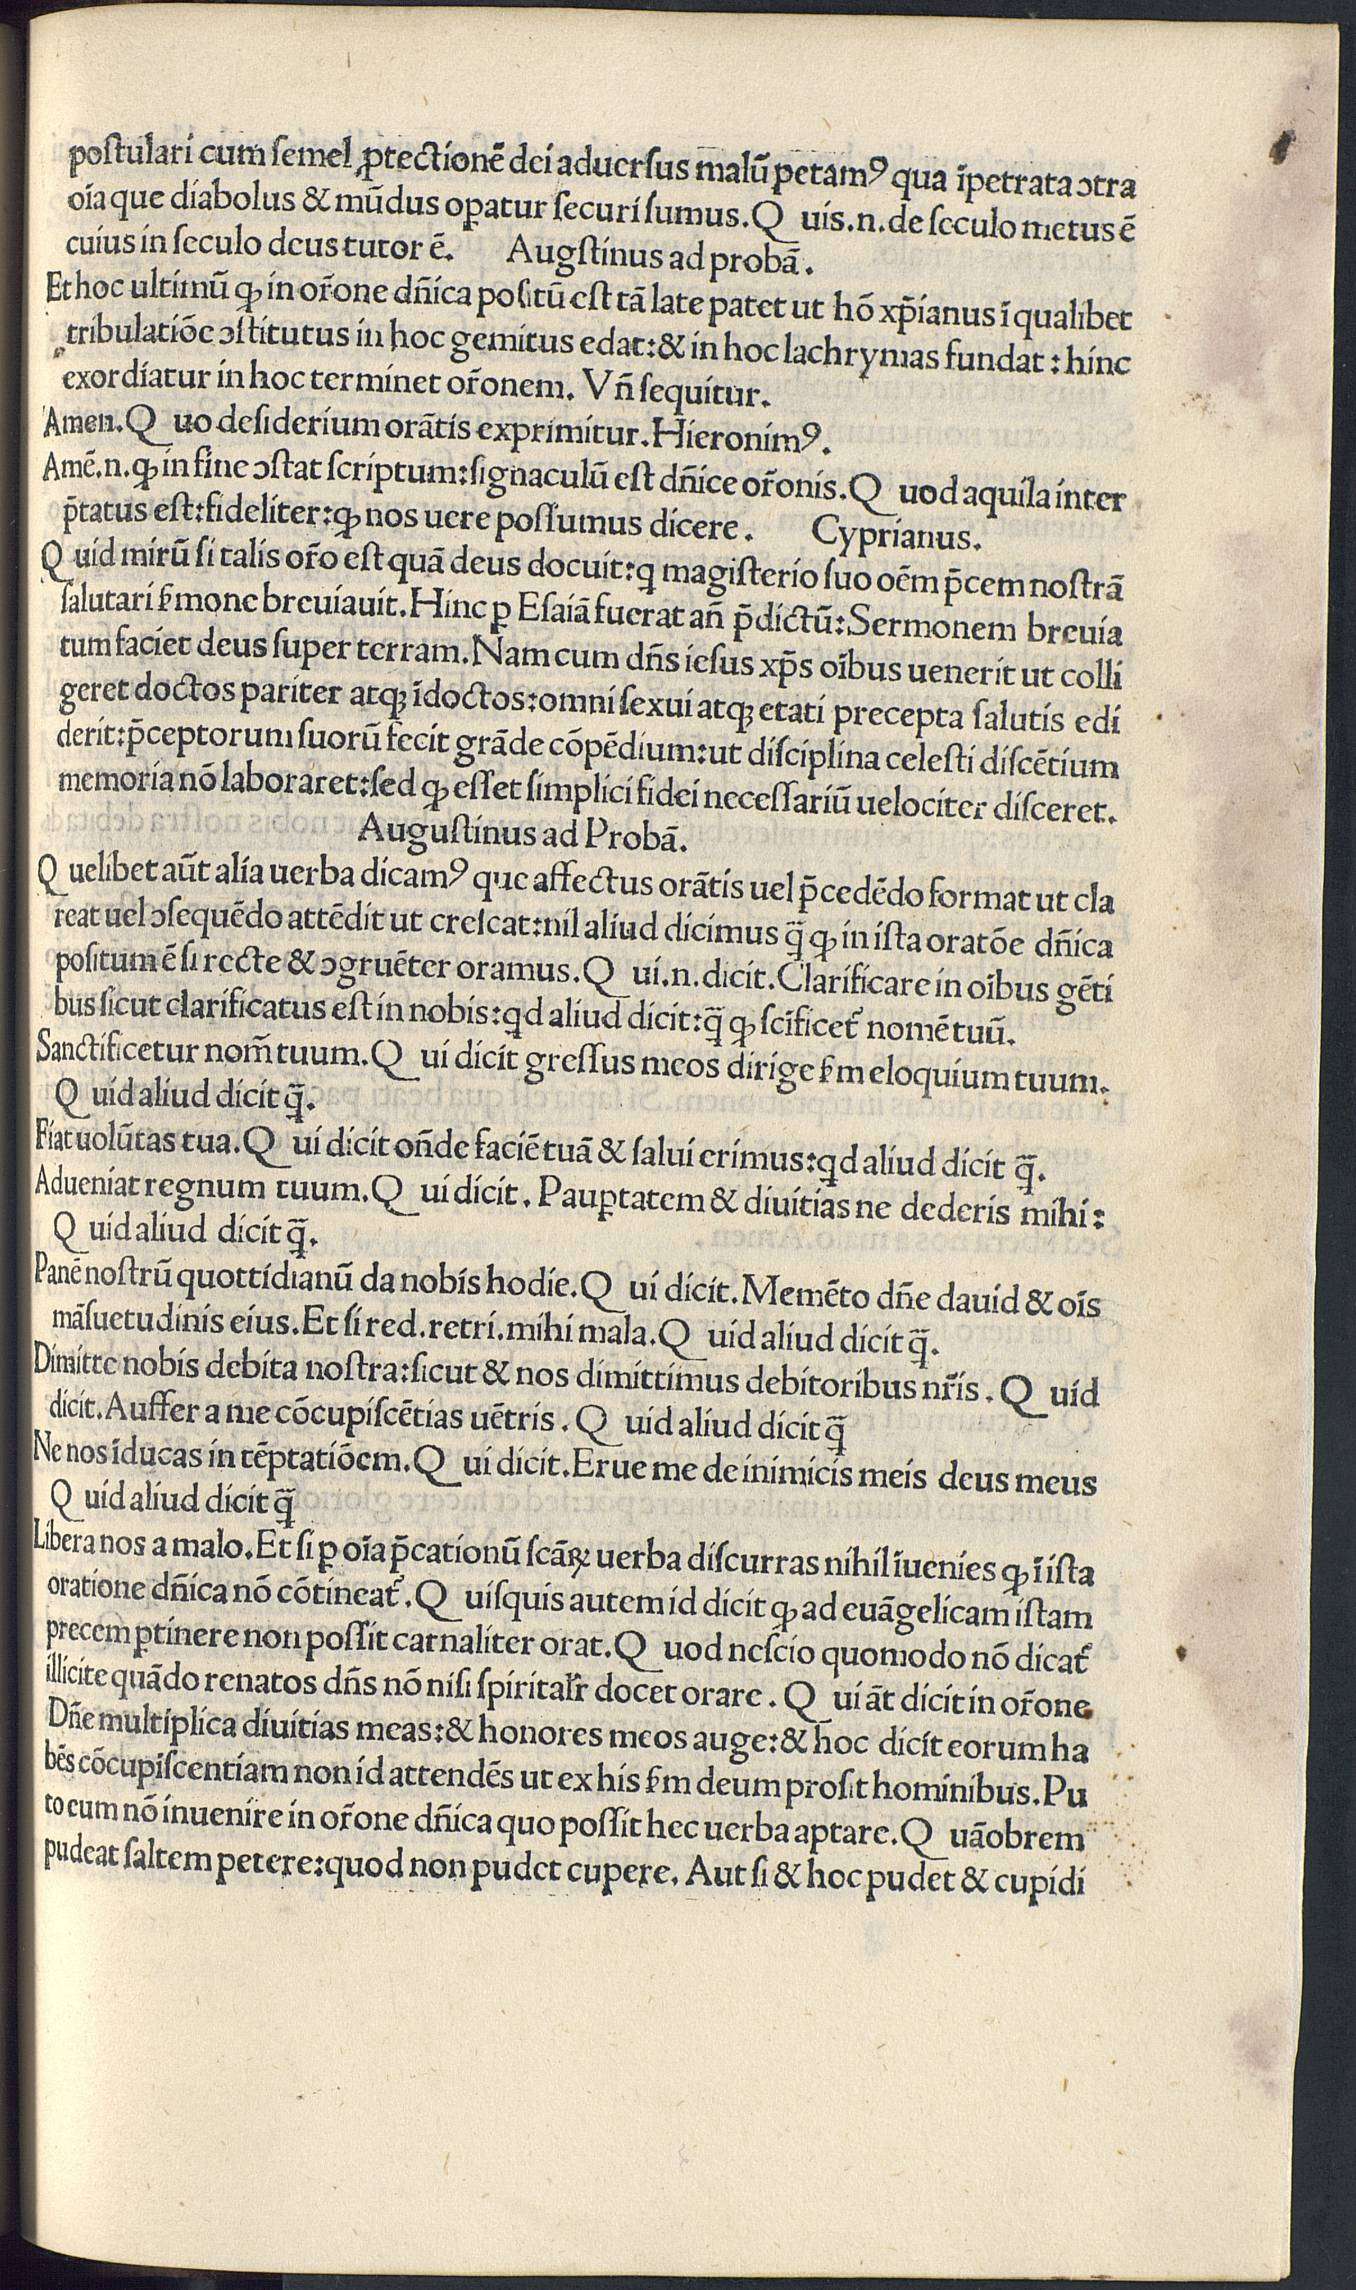 poſtulari cum ſemel ꝓtectionē dei aduerſus malū petamꝰ qua īpetrata ↄtra
oīa que diabolus & mūdus oꝑatur ſecuri ſumus. Q uis.n. de ſeculo metus ē
cuius in ſeculo deus tutor ē. Augſtinus ad probā.
Et hoc ultimū ꝙ in or̄one dn̄ica poſitū eſt tā late patet ut hō xp̄ianus ī qualibet
tribulatiōe ↄſtitutus in hoc gemitus edat: & in hoc lachrymas fundat: hinc
exordiatur in hoc terminet or̄onem. Vn̄ ſequitur.
Amen. Q uo deſiderium orātis exprimitur. Hieronimꝰ.
Amē.n. ꝙ in fine ↄſtat ſcriptum: ſignaculū eſt dn̄ice or̄onis. Q uod aquila inter
p̄tatus eſt: fideliter: ꝙ nos uere poſſumus dicere. Cyprianus.
Q uid mirū ſi talis or̄o eſt quā deus docuit: ꝗ magiſterio ſuo oēm p̄cem noſtrā
ſalutari ẜmone breuiauit. Hinc ꝑ Eſaiā fuerat an̄ p̄dictū: Sermonem breuia
tum faciet deus ſuper terram. Nam cum dn̄s ieſus xp̄s oībus uenerit ut colli
geret doctos pariter atqꝫ īdoctos: omni ſexui atqꝫ etati precepta ſalutis edi
derit: p̄ceptorum ſuorū fecit grāde cōpēdium: ut diſciplina celeſti diſcētium
memoria nō laboraret: ſed ꝙ eſſet ſimplici fidei neceſſariū uelociter diſceret.
Auguſtinus ad Probā.
Q uelibet aūt alia uerba dicamꝰ que affectus orātis uel p̄cedēdo format ut cla
reat uel ↄſequēdo attēdit ut creſcat: nil aliud dicimus ꝗ̄ ꝙ in iſta oratōe dn̄ica
poſitum ē ſi recte & ↄgruēter oramus. Q ui.n. dicit. Clarificare in oībus gēti
bus ſicut clarificatus eſt in nobis: ꝗd aliud dicit: ꝗ̄ ꝙ ſcīficet᷑ nomē tuū.
Sanctificetur nom̄ tuum. Q ui dicit greſſus meos dirige ẜm eloquium tuum.
Q uid aliud dicit ꝗ̄.
Fiat uolūtas tua. Q ui dicit on̄de faciē tuā & ſalui erimus: ꝗd aliud dicit ꝗ̄.
Adueniat regnum tuum. Q ui dicit. Pauꝑtatem & diuitias ne dederis mihi:
Q uid aliud dicit ꝗ̄.
Panē noſtrū quottidianū da nobis hodie. Q ui dicit. Memēto dn̄e dauid & oīs
māſuetudinis eius. Et ſi red. retri. mihi mala. Q uid aliud dicit ꝗ̄.
Dimitte nobis debita noſtra: ſicut & nos dimittimus debitoribus nr̄is. Q uid
dicit. Auffer a me cōcupiſcētias uētris. Q uid aliud dicit ꝗ̄
Ne nos īducas in tēptatiōem. Q ui dicit. Erue me de inimicis meis deus meus
Q uid aliud dicit ꝗ̄
Libera nos a malo. Et ſi ꝑ oīa p̄cationū ſcāꝝ uerba diſcurras nihil īuenies ꝙ ī iſta
oratione dn̄ica nō cōtineat᷑. Q uiſquis autem id dicit ꝙ ad euāgelicam iſtam
precem ꝑtinere non poſſit carnaliter orat. Q uod neſcio quomodo nō dicat᷑
illicite quādo renatos dn̄s nō niſi ſpiritalr̄ docet orare. Q ui āt dicit in or̄one
Dn̄e multiplica diuitias meas: & honores meos auge: & hoc dicit eorum ha
bēs cōcupiſcentiam non id attendēs ut ex his ẜm deum proſit hominibus. Pu
to eum nō inuenire in or̄one dn̄ica quo poſſit hec uerba aptare. Q uāobrem
pudeat ſaltem petere: quod non pudet cupere. Aut ſi & hoc pudet & cupidi